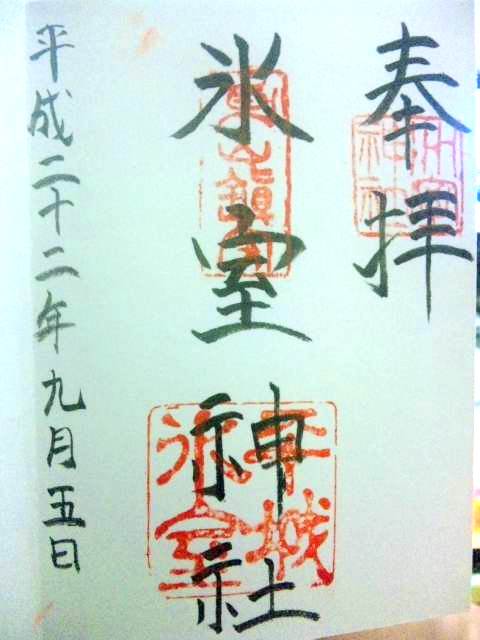 奉拝
氷室神社
平成二十二年九月五日
平城
氷室